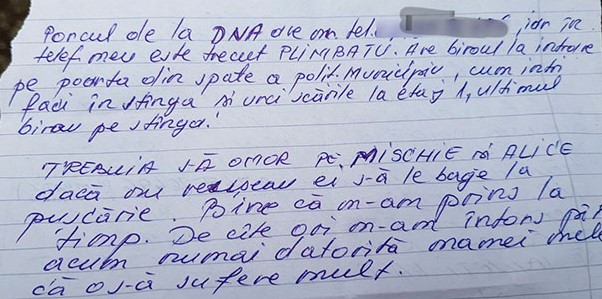 Porcul de la DNA are nr. tel. , iar în
telef. meu este trecut PLIMBATU. Are biroul la intrare
pe poarta din spate a polit. Municipiu, cum intri
faci în stînga și urci scările la etaj 1, ultimul
birou pe stînga.
TREBUIA SĂ OMOR PE MISCHIE și ALICE
dacă nu reușeau ei s-ă le bage la
pușcărie. Bine că m-am prins la
timp. De cîte ori m-am întors pân
acum numai datorită mamei mele
că o s-ă sufere mult.